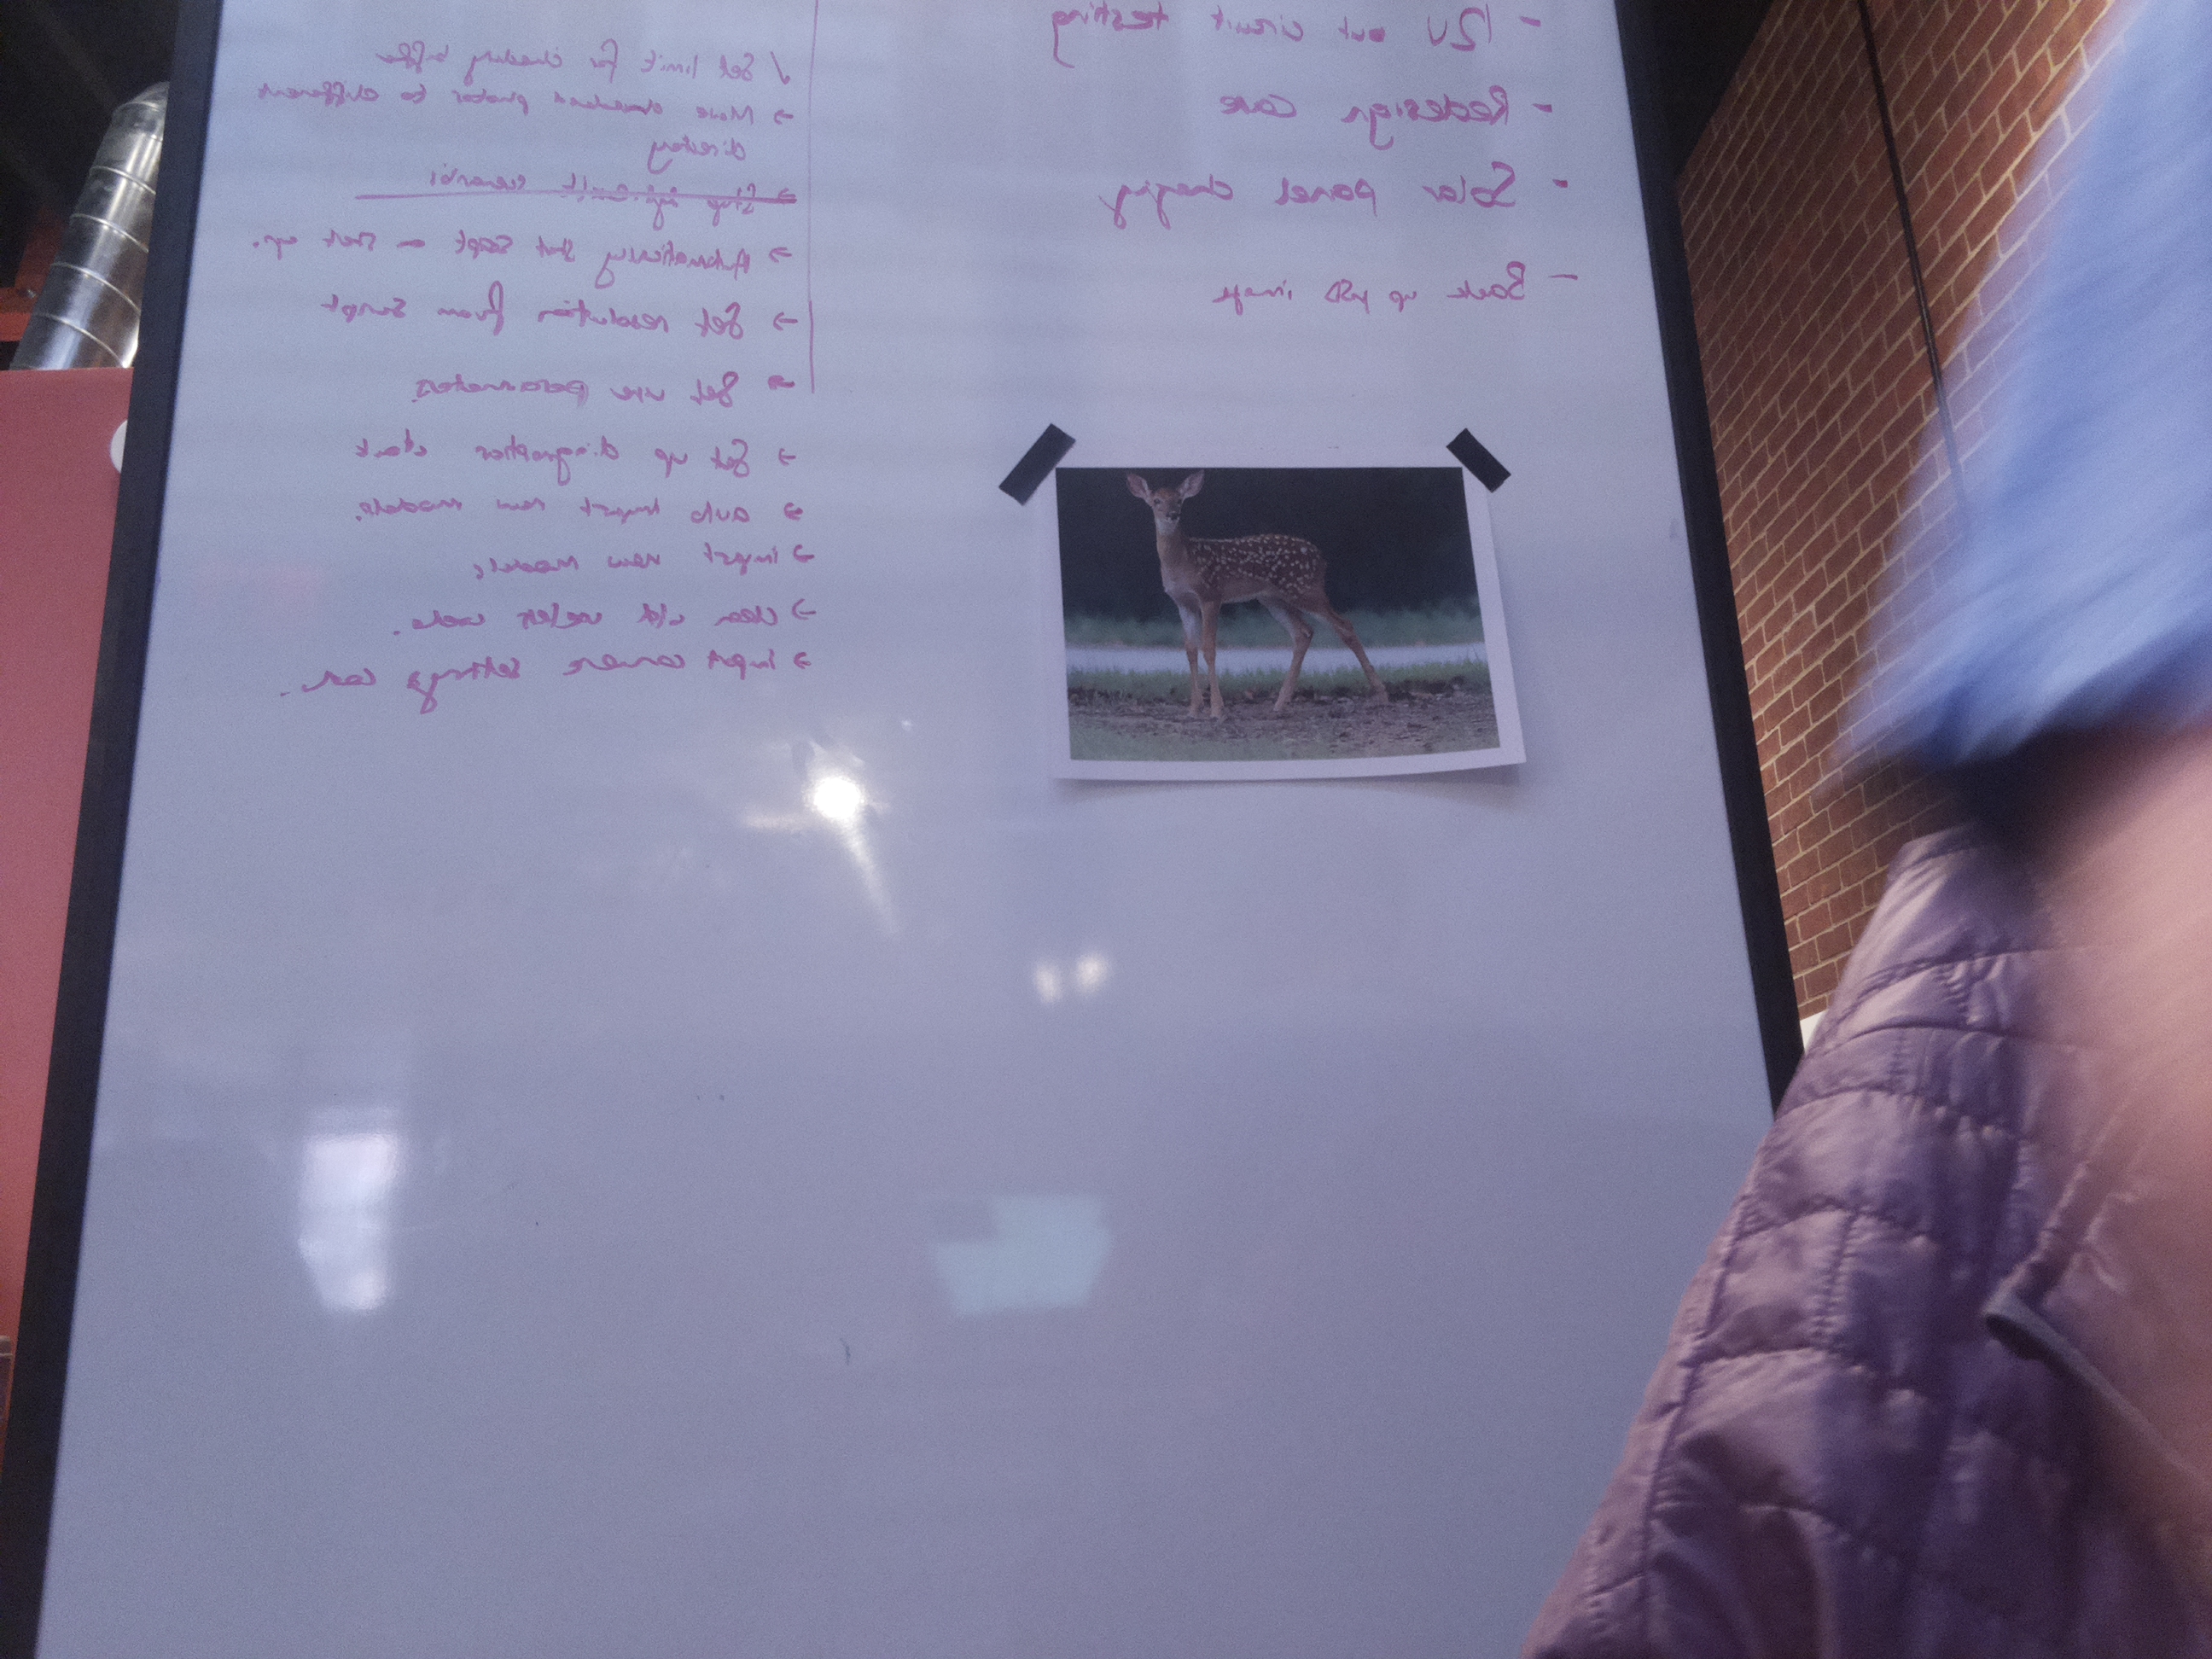 - 12V out circuit testing
- Redesign case
- Solar panel charging
- Back up µSD image
✓ Set limit for checking buffer
→ Move download photos to different
directory
→ Automatically start script on start up.
→ Set resolution from script
→ Set use parameters
→ Set up diagnostics chart
→ auto import new models.
→ import new models
→ clear old
→ import camera settings